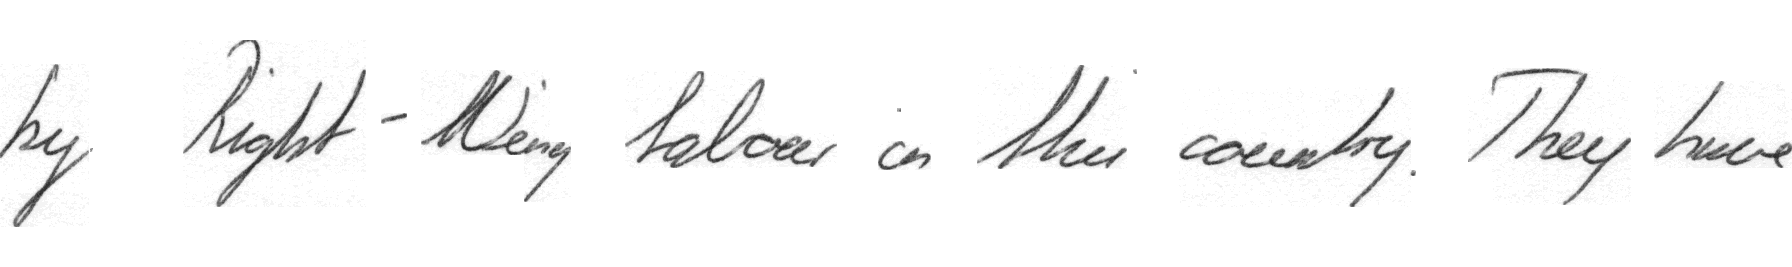 by Right-Wing Labour in this country. They have